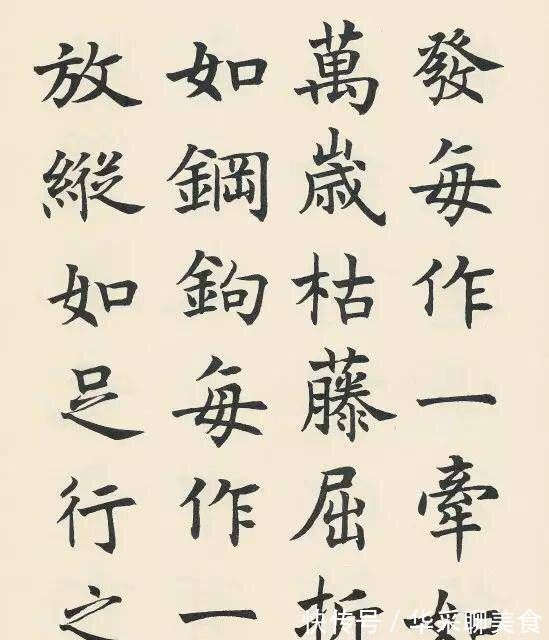 發每作一牽
萬歳枯藤屈
如鋼鉤每作一
放縱如足行之
快传号 / 华采聊美食